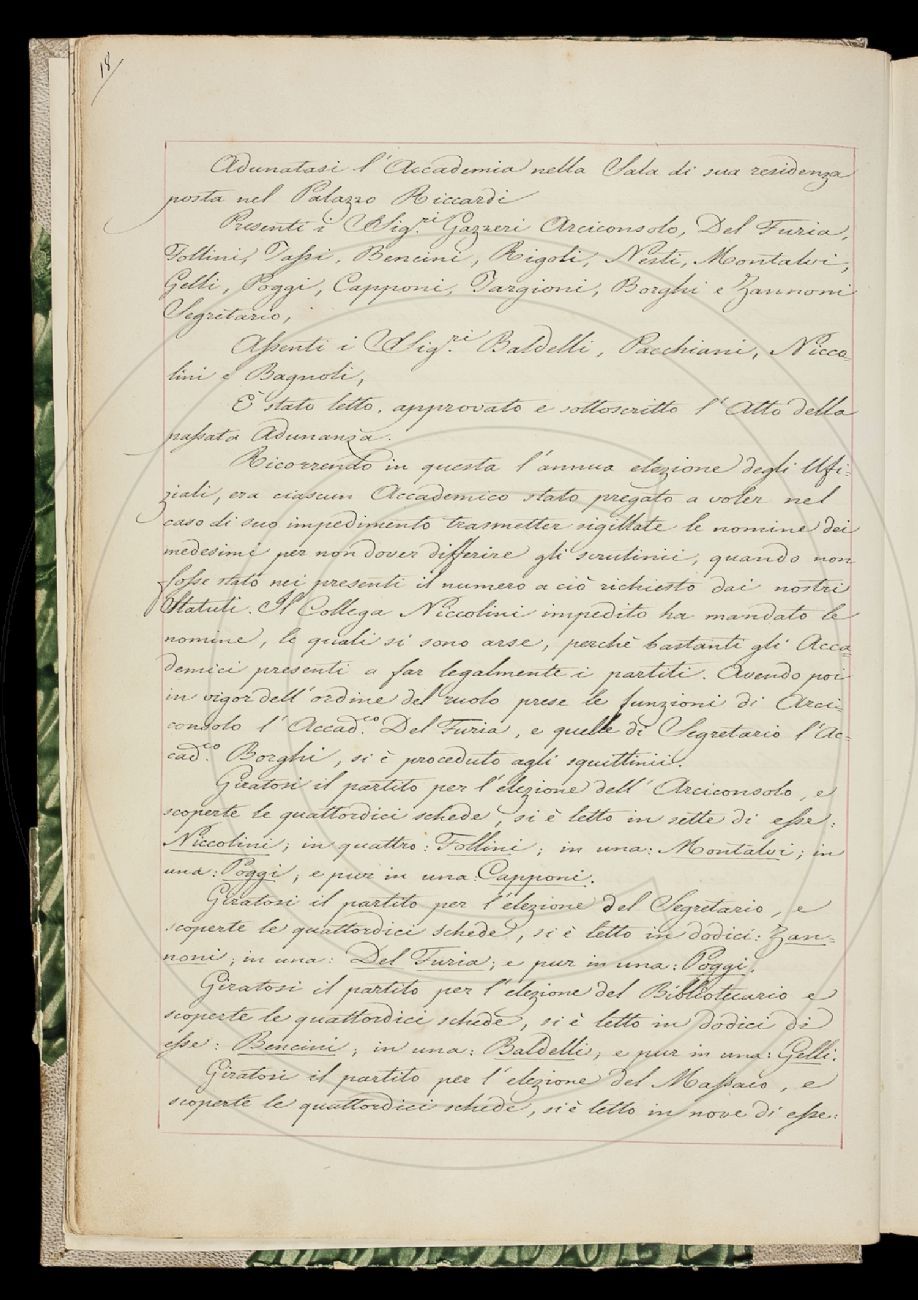 18
Adunatasi l'Accademia nella Sala di sua residenza
posta nel Palazzo Riccardi
Presenti i SSig.ri Gazzeri Arciconsolo, Del Furia,
Follini, Tassi, Bencini, Rigoli, Nesti, Montalvi,
Gelli, Poggi, Capponi, Targioni, Borghi e Zannoni
Segretario,
Assenti i SSig.ri Baldelli, Pacchiani, Nicco-
lini e Bagnoli,
È stato letto, approvato e sottoscritto l'Atto della
passata Adunanza.
Ricorrendo in questa l'annua elezione degli Ufi-
ziali, era ciascun Accademico stato pregato a voler nel
caso di suo impedimento trasmetter sigillate le nomine dei
medesimi per non dover differire gli scrutinii, quando non
fosse stato nei presenti il numero a ciò richiesto dai nostri
Statuti. Il Collega Niccolini impedito ha mandato le
nomine, le quali si sono arse, perchè bastanti gli Acca-
demici presenti a far legalmente i partiti. Avendo poi
in vigor dell'ordine del ruolo prese le funzioni di Arci-
consolo l'Accad.co Del Furia, e quelle di Segretario l'Ac-
cad.co Borghi, si è proceduto agli squittinii.
Giratosi il partito per l'elezione dell'Arciconsolo, e
scoperte le quattordici schede, si è letto in sette di esse:
Niccolini; in quattro: Follini; in una: Montalvi; in
una: Poggi; e pur in una: Capponi.
Giratosi il partito per l'elezione del Segretario, e
scoperte le quattordici schede, si è letto in dodici: Zan-
noni; in una: Del Furia; e pur in una: Poggi.
Giratosi il partito per l'elezione del Bibliotecario e
scoperte le quattordici schede, si è letto in dodici di
esse: Bencini; in una: Baldelli; e pur in una: Gelli.
Giratosi il partito per l'elezione del Massaio, e
scoperte le quattordici schede, si è letto in nove di esse: